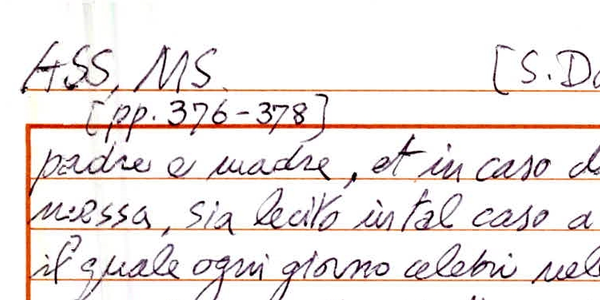 ASS, MS. [S. Do
[pp. 376-378]
padre e madre, et in caso d
messa, sia lecito in tal caso a
il quale ogni giorno celebri nel